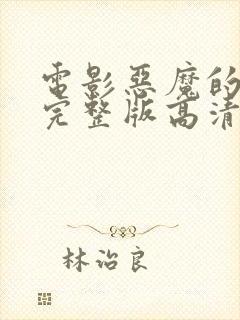 電影惡魔的
完整版高清
林治良